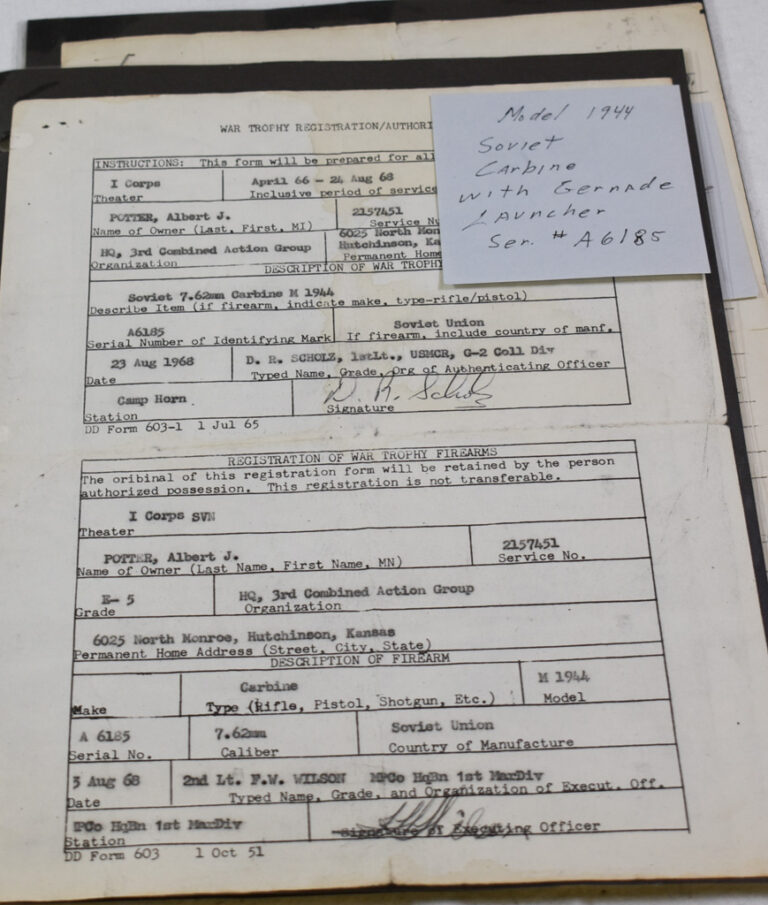 WAR TROPHY REGISTRATION/AUTHORI
INSTRUCTIONS: This form will be prepared for all
I Corps April 66 - 24 Aug 68
Theater Inclusive period of service
POTTER, Albert J. 2157451
Name of Owner (Last, First, MI) Service Nu
6025 North Mon
HQ, 3rd Combined Action Group Hutchinson, Ka
Organization Permanent Home
DESCRIPTION OF WAR TROPHY
Soviet 7.62mm Carbine M 1944
Describe Item (if firearm, indicate make, type-rifle/pistol)
A6185 Soviet Union
Serial Number of Identifying Mark If firearm, include country of manf.
23 Aug 1968 D. R. SCHOLZ, 1stLt., USMCR, G-2 Coll Div
Date Typed Name, Grade, Org of Authenticating Officer
Camp Horn D. R. Scholz
Station Signature
DD Form 603-1 1 Jul 65
REGISTRATION OF WAR TROPHY FIREARMS
The oribinal of this registration form will be retained by the person
authorized possession. This registration is not transferable.
I Corps SVN
Theater
POTTER, Albert J. 2157451
Name of Owner (Last Name, First Name, MN) Service No.
E- 5 HQ, 3rd Combined Action Group
Grade Organization
6025 North Monroe, Hutchinson, Kansas
Permanent Home Address (Street, City, State)
DESCRIPTION OF FIREARM
Carbine M 1944
Make Type (Rifle, Pistol, Shotgun, Etc.) Model
A 6185 7.62mm Soviet Union
Serial No. Caliber Country of Manufacture
3 Aug 68 2nd Lt. F.W. WILSON MPCo HqBn 1st MarDiv
Date Typed Name, Grade, and Organization of Execut. Off.
MPCo HqBn 1st MarDiv
Station Signature of Executing Officer
DD Form 603 1 Oct 51
Model 1944
Soviet
Carbine
with Gernade
Launcher
Ser. # A6185